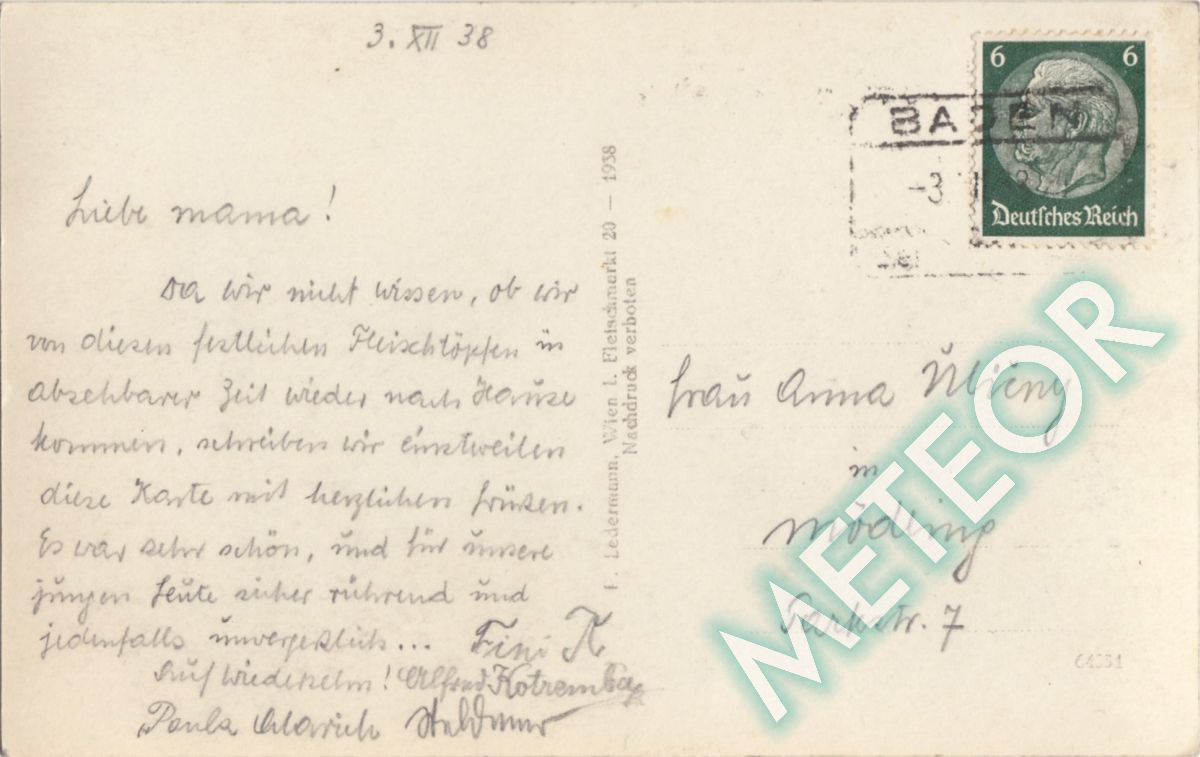 3. XII 38
Liebe Mama!
Da wir nicht wissen, ob wir
von diesen festlichen Fleischtöpfen in
absehbarer Zeit wieder nach Hause
kommen, schreiben wir einstweilen
diese Karte mit herzlichen Grüßen.
Es war sehr schön, und für unsere
jungen Leute sicher rührend und
jedenfalls unvergeßlich... Fini K
Auf Wiedersehn! Alfred Kotremba
Paula Alarich
P. Ledermann, Wien I. Fleischmarkt 20 — 1938
Nachdruck verboten
6 6
Deutsches Reich
BADEN
-3
Frau Anna Uličny
in
Mödling
Parkstr. 7
64351
METEOR